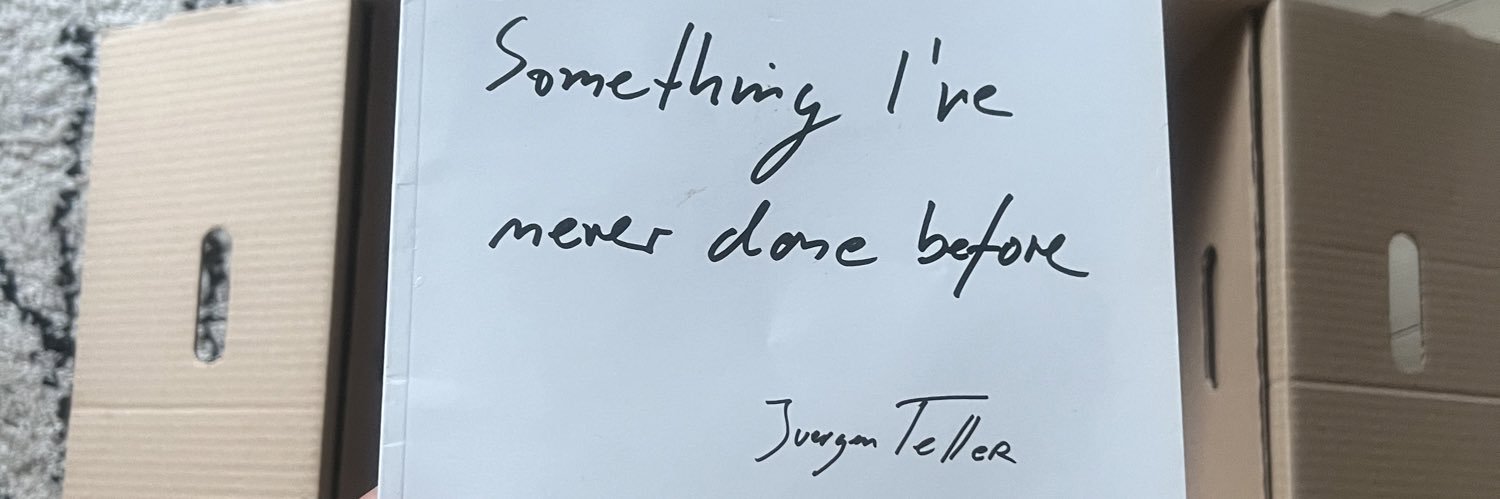 Something I've
never done before
Juergen Teller